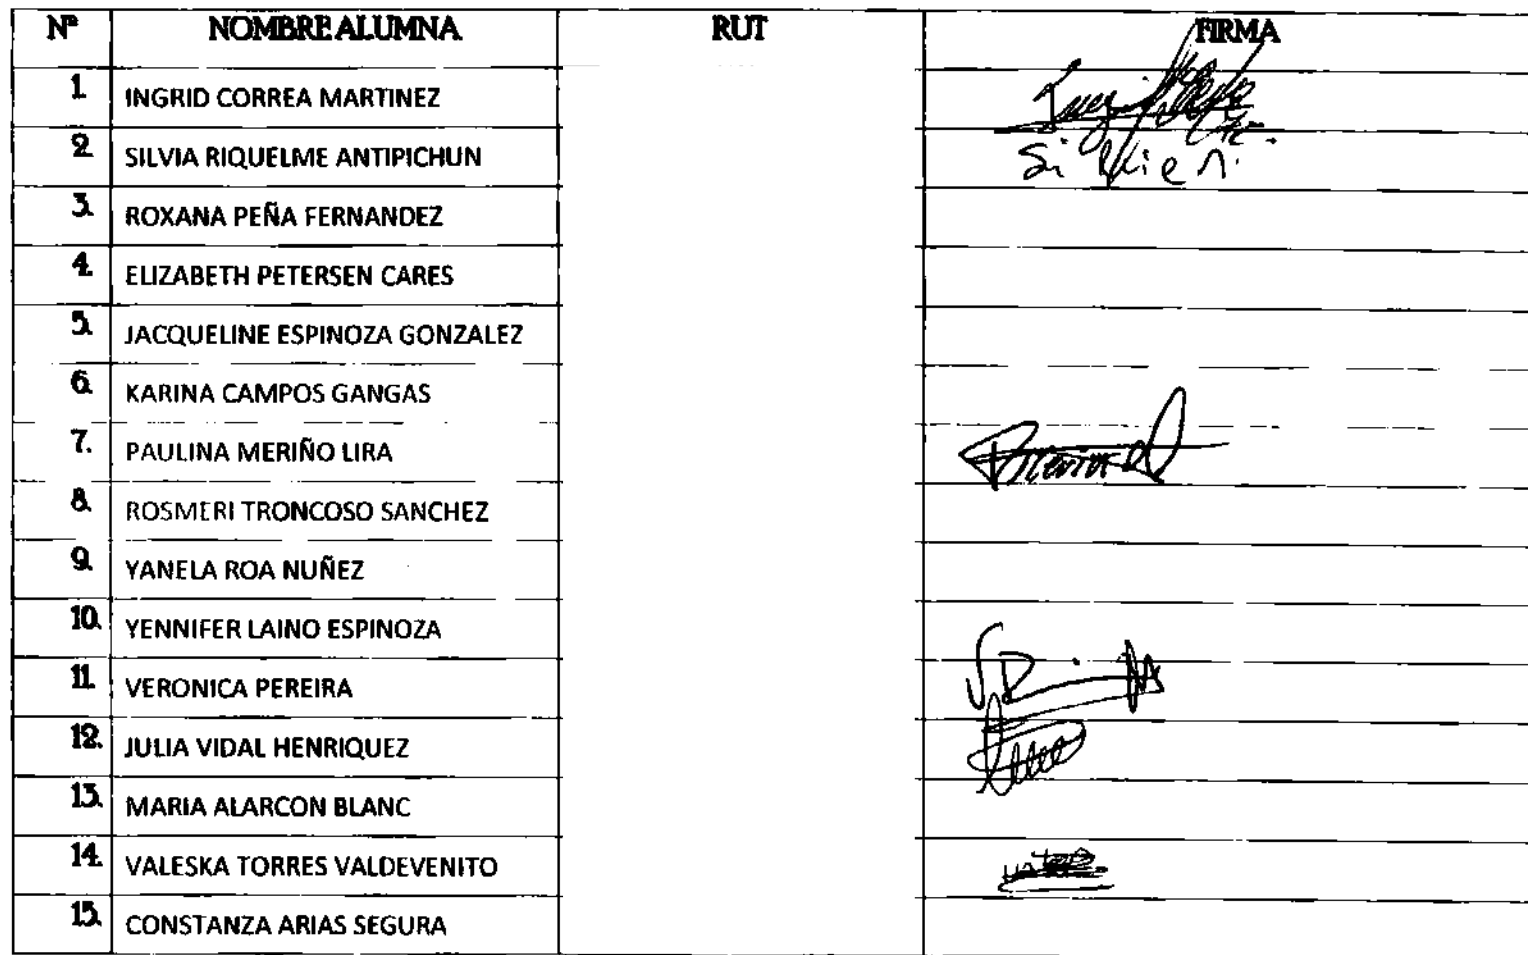 Nº NOMBRE ALUMNA RUT FIRMA
1. INGRID CORREA MARTINEZ
2. SILVIA RIQUELME ANTIPICHUN
3. ROXANA PEÑA FERNANDEZ
4. ELIZABETH PETERSEN CARES
5. JACQUELINE ESPINOZA GONZALEZ
6. KARINA CAMPOS GANGAS
7. PAULINA MERIÑO LIRA
8. ROSMERI TRONCOSO SANCHEZ
9. YANELA ROA NUÑEZ
10. YENNIFER LAINO ESPINOZA
11. VERONICA PEREIRA
12. JULIA VIDAL HENRIQUEZ
13. MARIA ALARCON BLANC
14. VALESKA TORRES VALDEVENITO
15. CONSTANZA ARIAS SEGURA